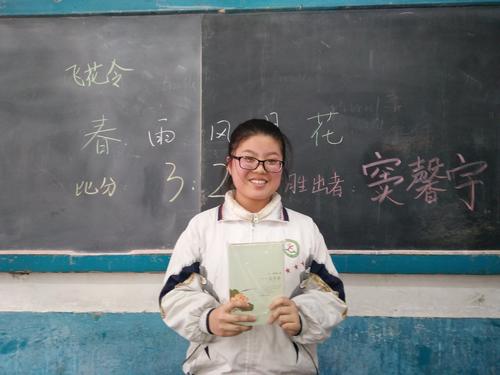 飞花令
春 雨 风 月 花
比分 3:2 胜出者: 窦馨宇